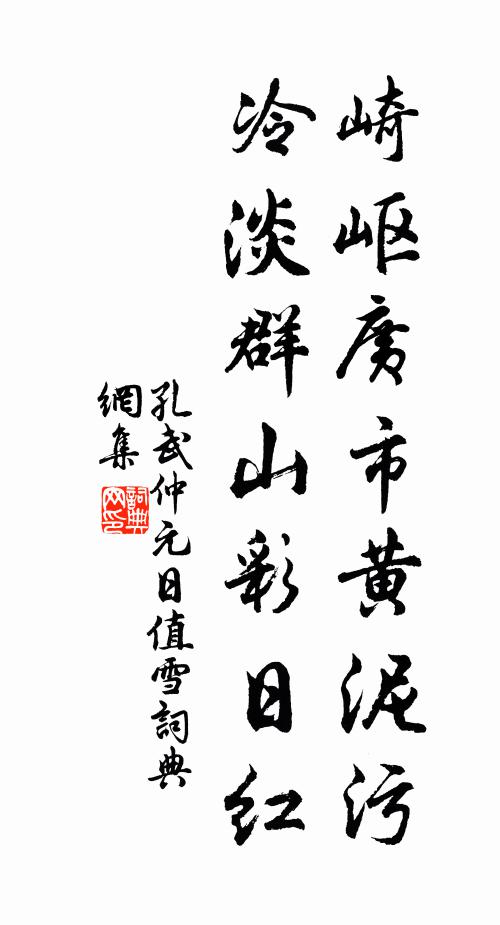 崎岖廣市黄泥污
冷淡群山彩日红
孔武仲元日值雪詞典
網集
詞典网印